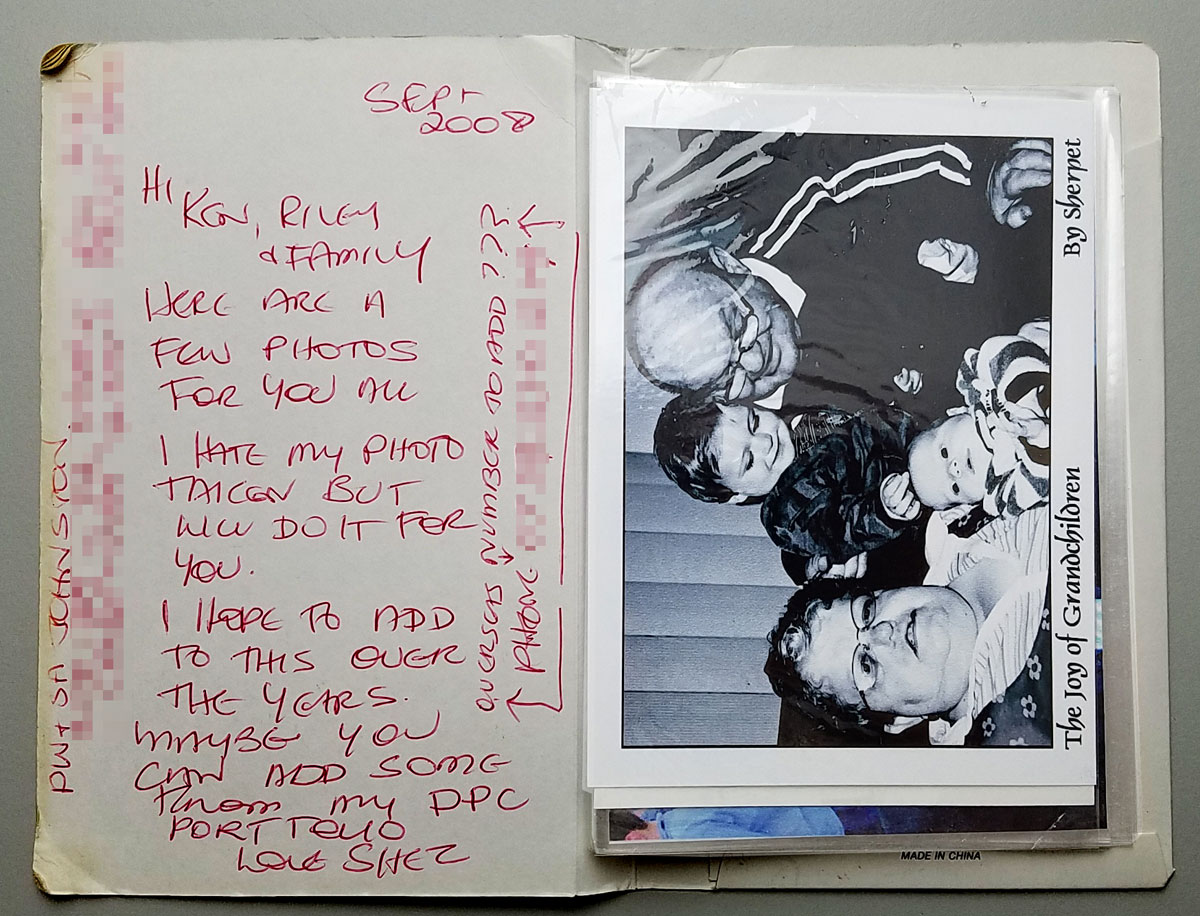 SEPT
2008
HI
KEN, RILEY
& FAMILY
HERE ARE A
FEW PHOTOS
FOR YOU ALL
I HATE MY PHOTO
TAKEN BUT
WILL DO IT FOR
YOU.
I HOPE TO ADD
TO THIS OVER
THE YEARS.
MAYBE YOU
CAN ADD SOME
FROM MY DPC
PORTFOLIO
LOVE SHEZ
OVERSEAS NUMBER TO ADD ???
PHONE
PW & SA JOHNSTON.
The Joy of Grandchildren By Sherpet
MADE IN CHINA